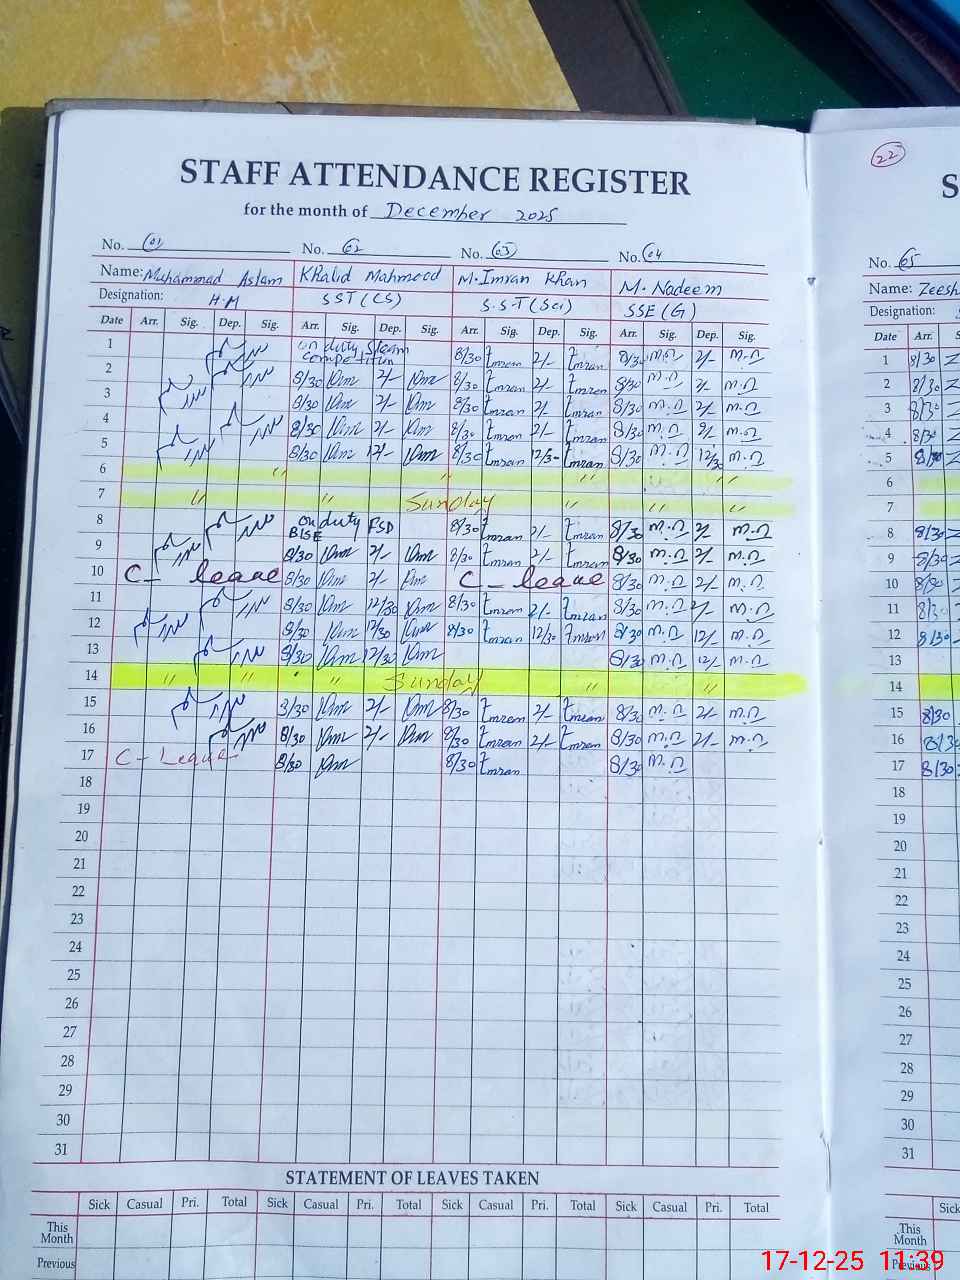 STAFF ATTENDANCE REGISTER
for the month of December 2025
No. 01 No. 02 No. 03 No. 04
Name: Muhammad Aslam Khalid Mahmood M. Imran Khan M. Nadeem
Designation: H.M SST (CS) S.S.T (Sci) SSE (G)
Date Arr. Sig. Dep. Sig. Arr. Sig. Dep. Sig. Arr. Sig. Dep. Sig. Arr. Sig. Dep. Sig.
1 on duty competition 8/30 Imran 2/- Imran 8/30 M.N 2/- M.N
2 8/30 2/- 8/30 Imran 2/- Imran 8/30 M.N 2/- M.N
3 8/30 2/- 8/30 Imran 2/- Imran 8/30 M.N 2/- M.N
4 8/30 2/- 8/30 Imran 2/- Imran 8/30 M.N 2/- M.N
5 8/30 12/- 8/30 Imran 12/30 Imran 8/30 M.N 12/30 M.N
6 " " " "
7 " " Sunday " " "
8 on duty BISE FSD 8/30 Imran 2/- Imran 8/30 M.N 2/- M.N
9 8/30 2/- 8/30 Imran 2/- Imran 8/30 M.N 2/- M.N
10 C - leave 8/30 2/- C - leave 8/30 M.N 2/- M.N
11 8/30 12/30 8/30 Imran 2/- Imran 8/30 M.N 2/- M.N
12 8/30 12/30 8/30 Imran 12/30 Imran 8/30 M.N 12/- M.N
13 8/30 12/30 8/30 M.N 12/- M.N
14 " " " Sunday " "
15 8/30 2/- 8/30 Imran 2/- Imran 8/30 M.N 2/- M.N
16 8/30 2/- 8/30 Imran 2/- Imran 8/30 M.N 2/- M.N
17 C - Leave 8/30 8/30 Imran 8/30 M.N
18
19
20
21
22
23
24
25
26
27
28
29
30
31
STATEMENT OF LEAVES TAKEN
Sick Casual Pri. Total Sick Casual Pri. Total Sick Casual Pri. Total Sick Casual Pri. Total
This Month
Previous
22
S
No. 05
Name: Zeesh
Designation:
Date Arr.
1 8/30
2 8/30
3 8/30
4 8/30
5 8/30
6
7
8 8/30
9 8/30
10 8/30
11 8/30
12 8/30
13
14
15 8/30
16 8/30
17 8/30
18
19
20
21
22
23
24
25
26
27
28
29
30
31
Sick
This Month
Previous
17-12-25 11:39